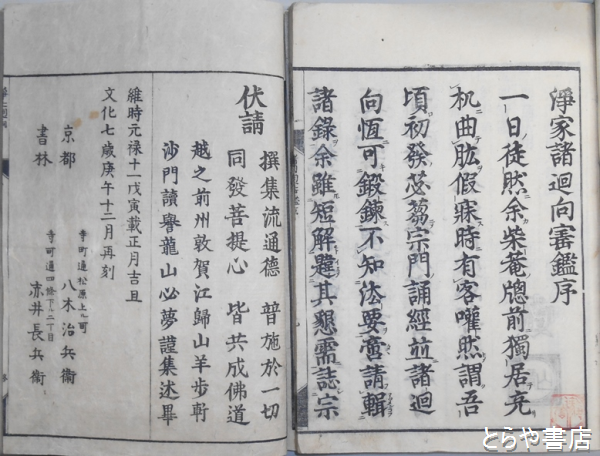 淨家諸迴向審鑑序
一日徒然余柴菴牕前獨居充
机曲肱假寐時有客嚾然謂吾
頃初發苾蒭宗門誦經並諸迴
向恆可鍛鍊不知法要啻請輯
諸錄余雖短解難其懇需誌宗
伏請
撰集流通德 普施於一切
同發菩提心 皆共成佛道
越之前州敦賀江歸山羊步軒
沙門讀譽龍山必夢謹集述畢
維時元禄十一戊寅載正月吉旦
文化七歳庚午十二月再刻
京都
書林
寺町通松原上ル町
八木治兵衞
寺町通四條下ル二丁目
赤井長兵衞
とらや書店